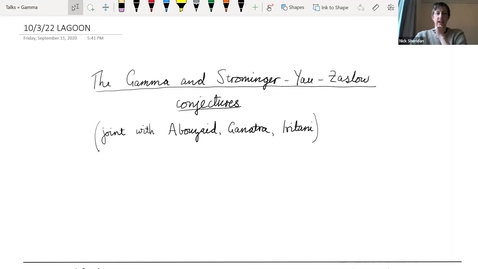 Talks > Gamma
Shapes
Ink to Shape
10/3/22 LAGOON
Friday, September 11, 2020 5:41 PM
The Gamma and Strominger-Yau-Zaslow
conjectures
(joint with Abouzaid, Ganatra, Iritani)
Nick Sheridan